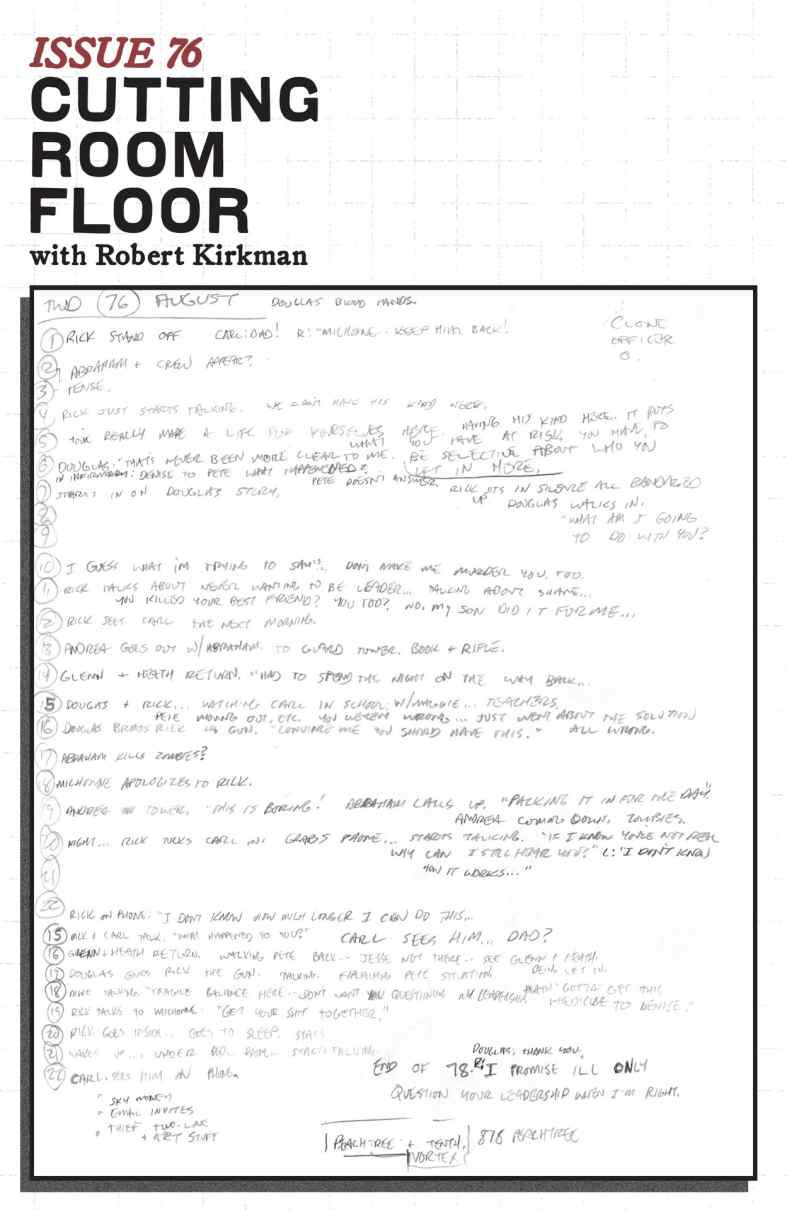 ISSUE 76
CUTTING
ROOM
FLOOR
with Robert Kirkman
TWD 76 AUGUST DOUGLAS BLOOD HANDS.
CLONE
OFFICER
1 RICK STAND OFF CARL: DAD! R: "MICHONNE-- KEEP HIM BACK!
2 ABRAHAM + CREW APPEAR?
3 TENSE.
4 RICK JUST STARTS TALKING. WE CAN'T HAVE HIS KIND HERE.
5 YOU'VE REALLY MADE A LIFE FOR YOURSELVES HERE. HAVING HIS KIND HERE. IT PUTS
WHAT YOU HAVE AT RISK, YOU HAVE TO
6 DOUGLAS: "THAT'S NEVER BEEN MORE CLEAR TO ME. BE SELECTIVE ABOUT WHO YOU
LET IN HERE.
IN INFIRMARY: DENISE TO PETE WHAT HAPPENED? PETE DOESN'T ANSWER
7 START IN ON DOUGLAS STORY. RICK SITS UP IN SILENCE ALL BANDAGED
8 DOUGLAS WALKS IN.
9 "WHAT AM I GOING
TO DO WITH YOU?
10 I GUESS WHAT I'M TRYING TO SAY IS, DON'T MAKE ME MURDER YOU, TOO.
11 RICK TALKS ABOUT NEVER WANTING TO BE LEADER... TALKING ABOUT SHANE...
YOU KILLED YOUR BEST FRIEND? YOU TOO? NO, MY SON DID IT FOR ME...
12 RICK SEES CARL THE NEXT MORNING.
13 ANDREA GOES OUT W/ABRAHAM. TO GUARD TOWER. BOOK + RIFLE.
14 GLENN + HEATH RETURN. "HAD TO SPEND THE NIGHT ON THE WAY BACK...
15 DOUGLAS + RICK... WATCHING CARL IN SCHOOL W/MAGGIE... TEACHERS.
PETE MOVING OUT, ETC. YOU WEREN'T WRONG... JUST WENT ABOUT THE SOLUTION
16 DOUGLAS BRINGS RICK HIS GUN. "CONVINCE ME YOU SHOULD HAVE THIS." ALL WRONG.
17 ABRAHAM KILLS ZOMBIES?
18 MICHONNE APOLOGIZES TO RICK.
19 ANDREA IN TOWER. "THIS IS BORING! ABRAHAM CALLS UP, "PACKING IT IN FOR THE DAY."
ANDREA COMING DOWN, ZOMBIES.
20 NIGHT... RICK TUCKS CARL IN. GRABS PHONE... STARTS TALKING. "IF I KNOW YOU'RE NOT REAL
WHY CAN I STILL HEAR YOU?" L: "I DON'T KNOW
21 HOW IT WORKS..."
22 RICK ON PHONE. "I DON'T KNOW HOW MUCH LONGER I CAN DO THIS...
15 RICK + CARL TALK. "WHAT HAPPENED TO YOU?" CARL SEES HIM... DAD?
16 GLENN + HEATH RETURN. WALKING PETE BACK-- JESSE NOT THERE-- SEE GLENN & HEATH
BEING LET IN.
17 DOUGLAS GIVES RICK THE GUN. TALKING. EXPLAINING PETE SITUATION
18 MORE TALKING "FRAGILE BALANCE HERE-- DON'T WANT YOU QUESTIONING MY LEADERSHIP. HEATH "GOTTA GET THIS
MEDICINE TO DENISE."
19 RICK TALKS TO MICHONNE. "GET YOUR SHIT TOGETHER."
20 RICK GOES INSIDE... GOES TO SLEEP. STARTS
21 WAKES UP... UNDER BED. PHONE. STARTS TALKING. DOUGLAS: THANK YOU,
22 CARL SEES HIM ON PHONE. END OF 78. R: I PROMISE ILL ONLY
QUESTION YOUR LEADERSHIP WHEN I'M RIGHT.
SKY MONEY
EMAIL INVITES
THIEF TWO-LINE
+ ART STUFF
PEACHTREE + TENTH. 878 PEACHTREE
VORTEX